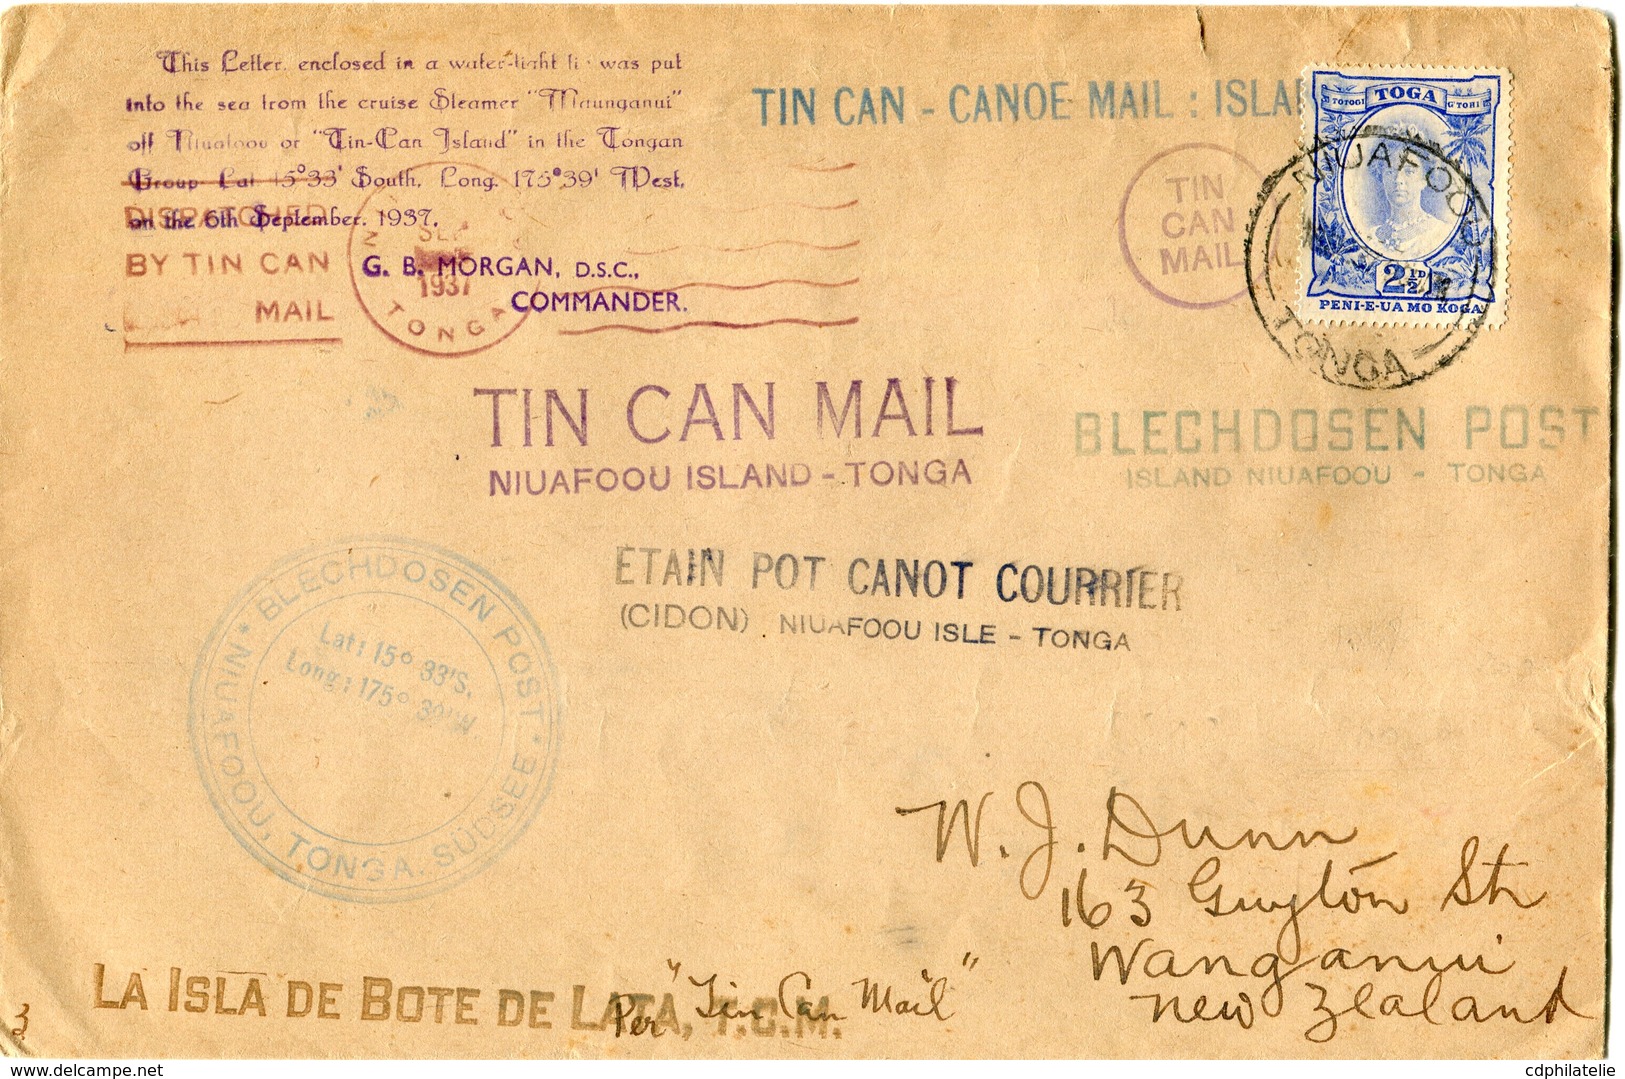 This Letter, enclosed in a water-tight tin was put
into the sea from the cruise Steamer "Maunganui"
off Niuafoou or "Tin-Can Island" in the Tongan
Group Lat 15°33' South, Long. 175°39' West,
on the 6th September, 1937.
G. B. MORGAN, D.S.C.,
COMMANDER.
DISPATCHED
BY TIN CAN
MAIL
1937
TONGA
TIN CAN - CANOE MAIL : ISLA
TIN
CAN
MAIL
TOTOGI TOGA G TOHI
2½D
PENI-E-UA MO KOGA
NIUAFOOU
TONGA
TIN CAN MAIL
NIUAFOOU ISLAND - TONGA
BLECHDOSEN POST
ISLAND NIUAFOOU - TONGA
ETAIN POT CANOT COURRIER
(CIDON) NIUAFOOU ISLE - TONGA
BLECHDOSEN POST
Lat: 15° 33'S.
Long: 175°
NIUAFOOU, TONGA. SÜDSEE
W. J. Dunn
163 Guyton St
Wanganui
New Zealand
LA ISLA DE BOTE DE LATA, T.C.M.
Per "Tin Can Mail"
3
www.delcampe.net
cdphilatelie